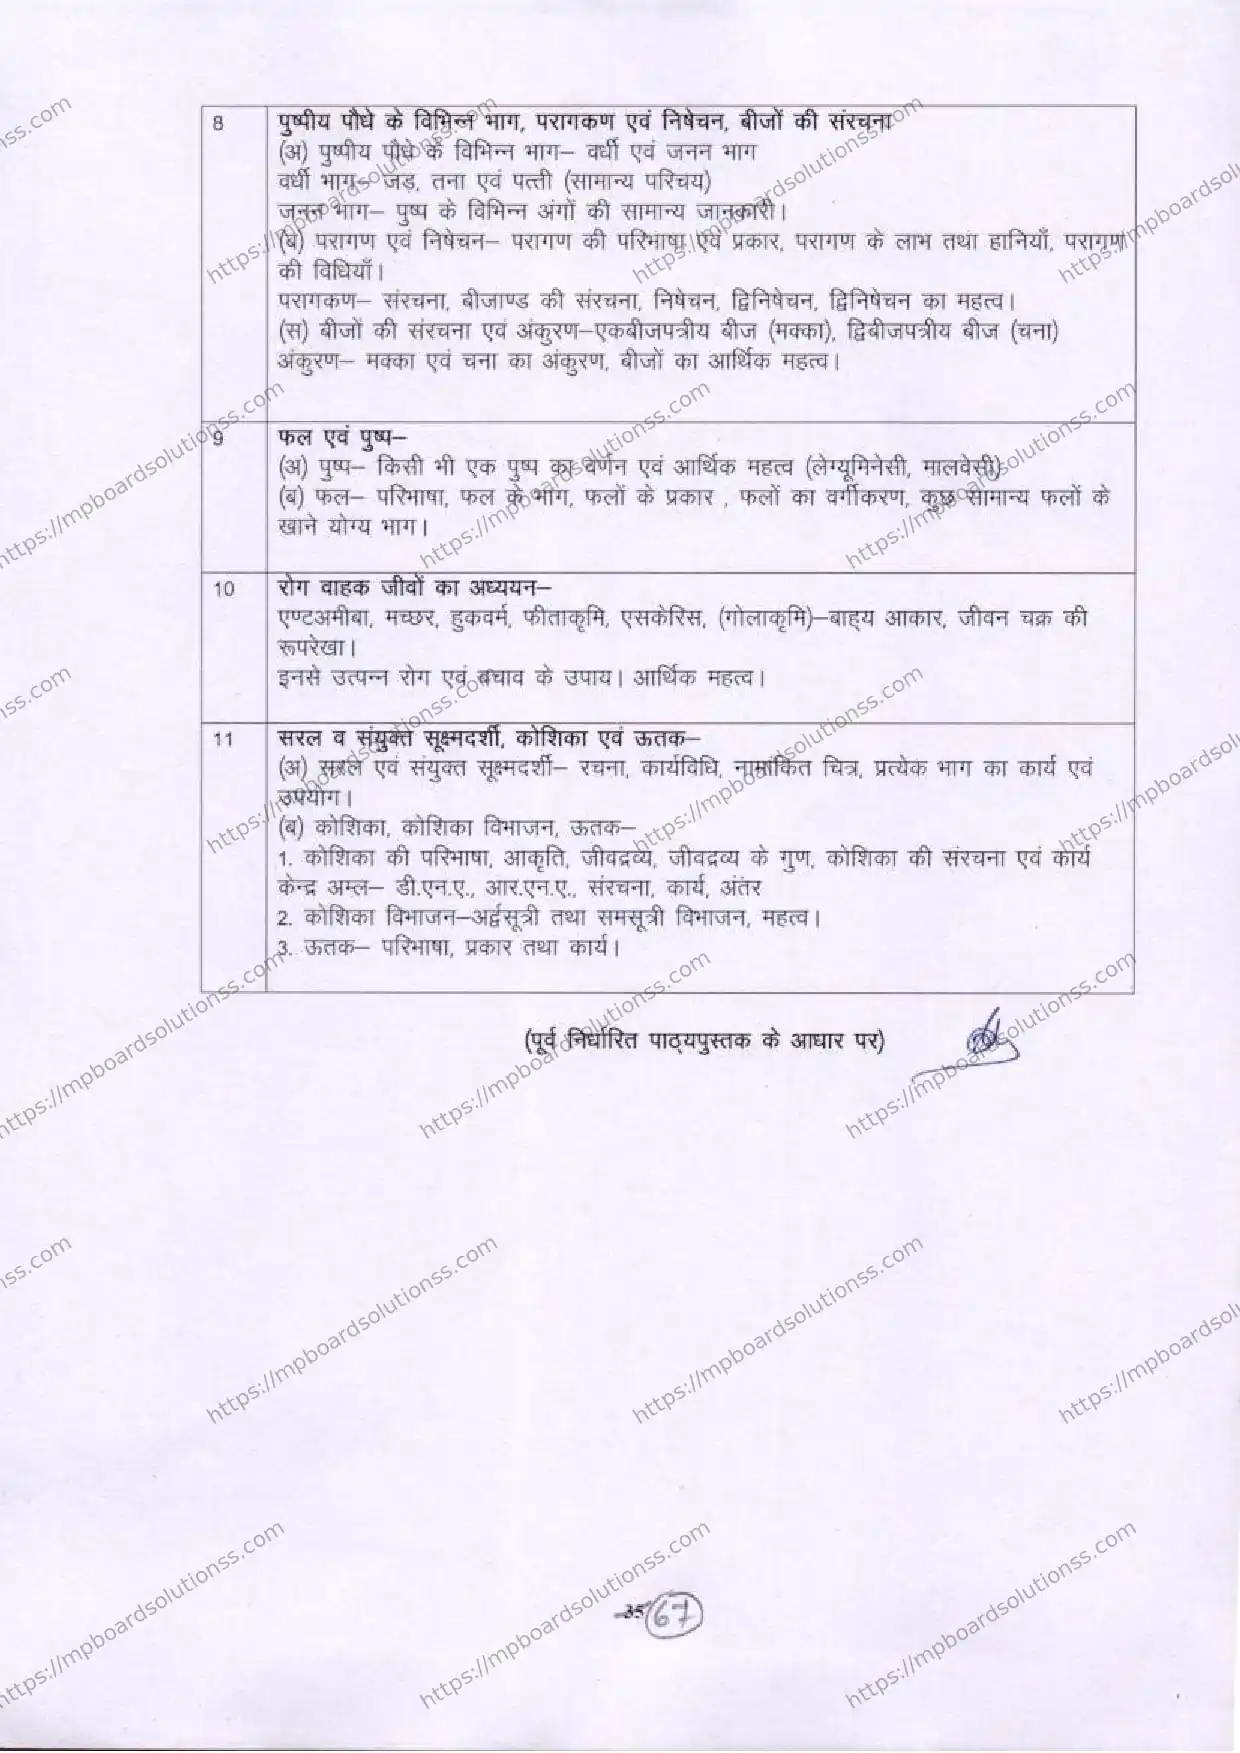 8
पुष्पीय पौधे के विभिन्न भाग, परागकण एवं निषेचन, बीजों की संरचना
(अ) पुष्पीय पौधे के विभिन्न भाग– वर्धी एवं जनन भाग
वर्धी भाग– जड़, तना एवं पत्ती (सामान्य परिचय)
जनन भाग– पुष्प के विभिन्न अंगों की सामान्य जानकारी।
(ब) परागण एवं निषेचन– परागण की परिभाषा एवं प्रकार, परागण के लाभ तथा हानियाँ, परागण
की विधियाँ।
परागकण– संरचना, बीजाण्ड की संरचना, निषेचन, द्विनिषेचन, द्विनिषेचन का महत्व।
(स) बीजों की संरचना एवं अंकुरण–एकबीजपत्रीय बीज (मक्का), द्विबीजपत्रीय बीज (चना)
अंकुरण– मक्का एवं चना का अंकुरण, बीजों का आर्थिक महत्व।
9
फल एवं पुष्प–
(अ) पुष्प– किसी भी एक पुष्प का वर्णन एवं आर्थिक महत्व (लेग्यूमिनेसी, मालवेसी)
(ब) फल– परिभाषा, फल के भाग, फलों के प्रकार , फलों का वर्गीकरण, कुछ सामान्य फलों के
खाने योग्य भाग।
10
रोग वाहक जीवों का अध्ययन–
एण्टअमीबा, मच्छर, हुकवर्म, फीताकृमि, एसकेरिस, (गोलाकृमि)–बाह्य आकार, जीवन चक्र की
रूपरेखा।
इनसे उत्पन्न रोग एवं बचाव के उपाय। आर्थिक महत्व।
11
सरल व संयुक्त सूक्ष्मदर्शी, कोशिका एवं ऊतक–
(अ) सरल एवं संयुक्त सूक्ष्मदर्शी– रचना, कार्यविधि, नामांकित चित्र, प्रत्येक भाग का कार्य एवं
उपयोग।
(ब) कोशिका, कोशिका विभाजन, ऊतक–
1. कोशिका की परिभाषा, आकृति, जीवद्रव्य, जीवद्रव्य के गुण, कोशिका की संरचना एवं कार्य
केन्द्र अम्ल– डी.एन.ए., आर.एन.ए., संरचना, कार्य, अंतर
2. कोशिका विभाजन–अर्द्वसूत्री तथा समसूत्री विभाजन, महत्व।
3. ऊतक– परिभाषा, प्रकार तथा कार्य।
(पूर्व निर्धारित पाठ्यपुस्तक के आधार पर)
35 67
https://mpboardsolutionss.com